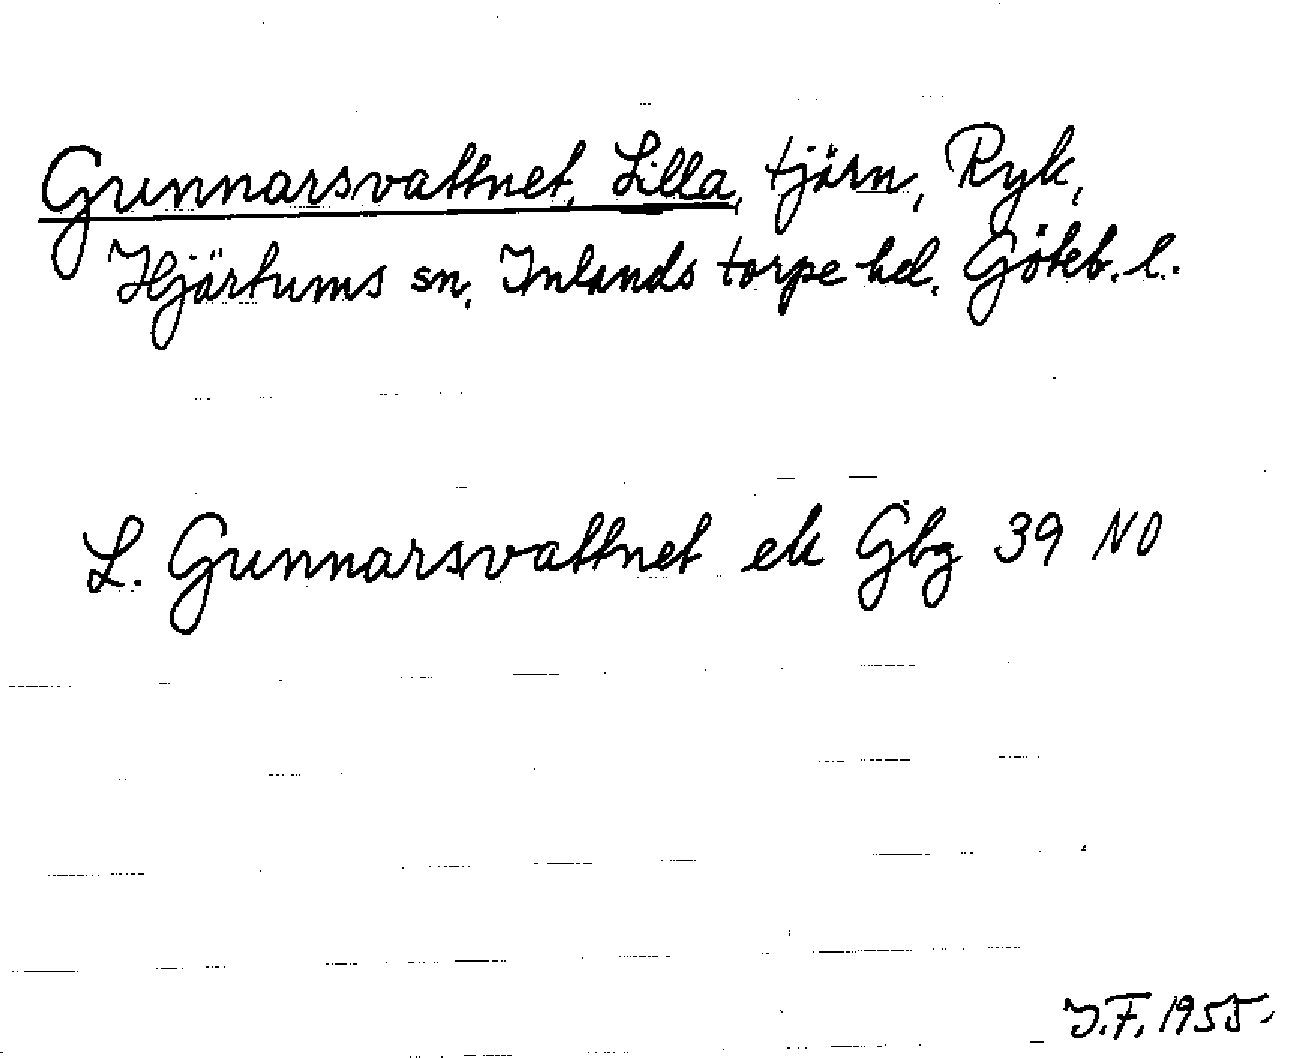 Gunnarsvattnet, Lilla, tjärn, Ryk,
Hjärtums sn, Inlands torpe hd, Göteb. l.
L. Gunnarsvattnet ek Gbg 39 NO
I.F. 1955.